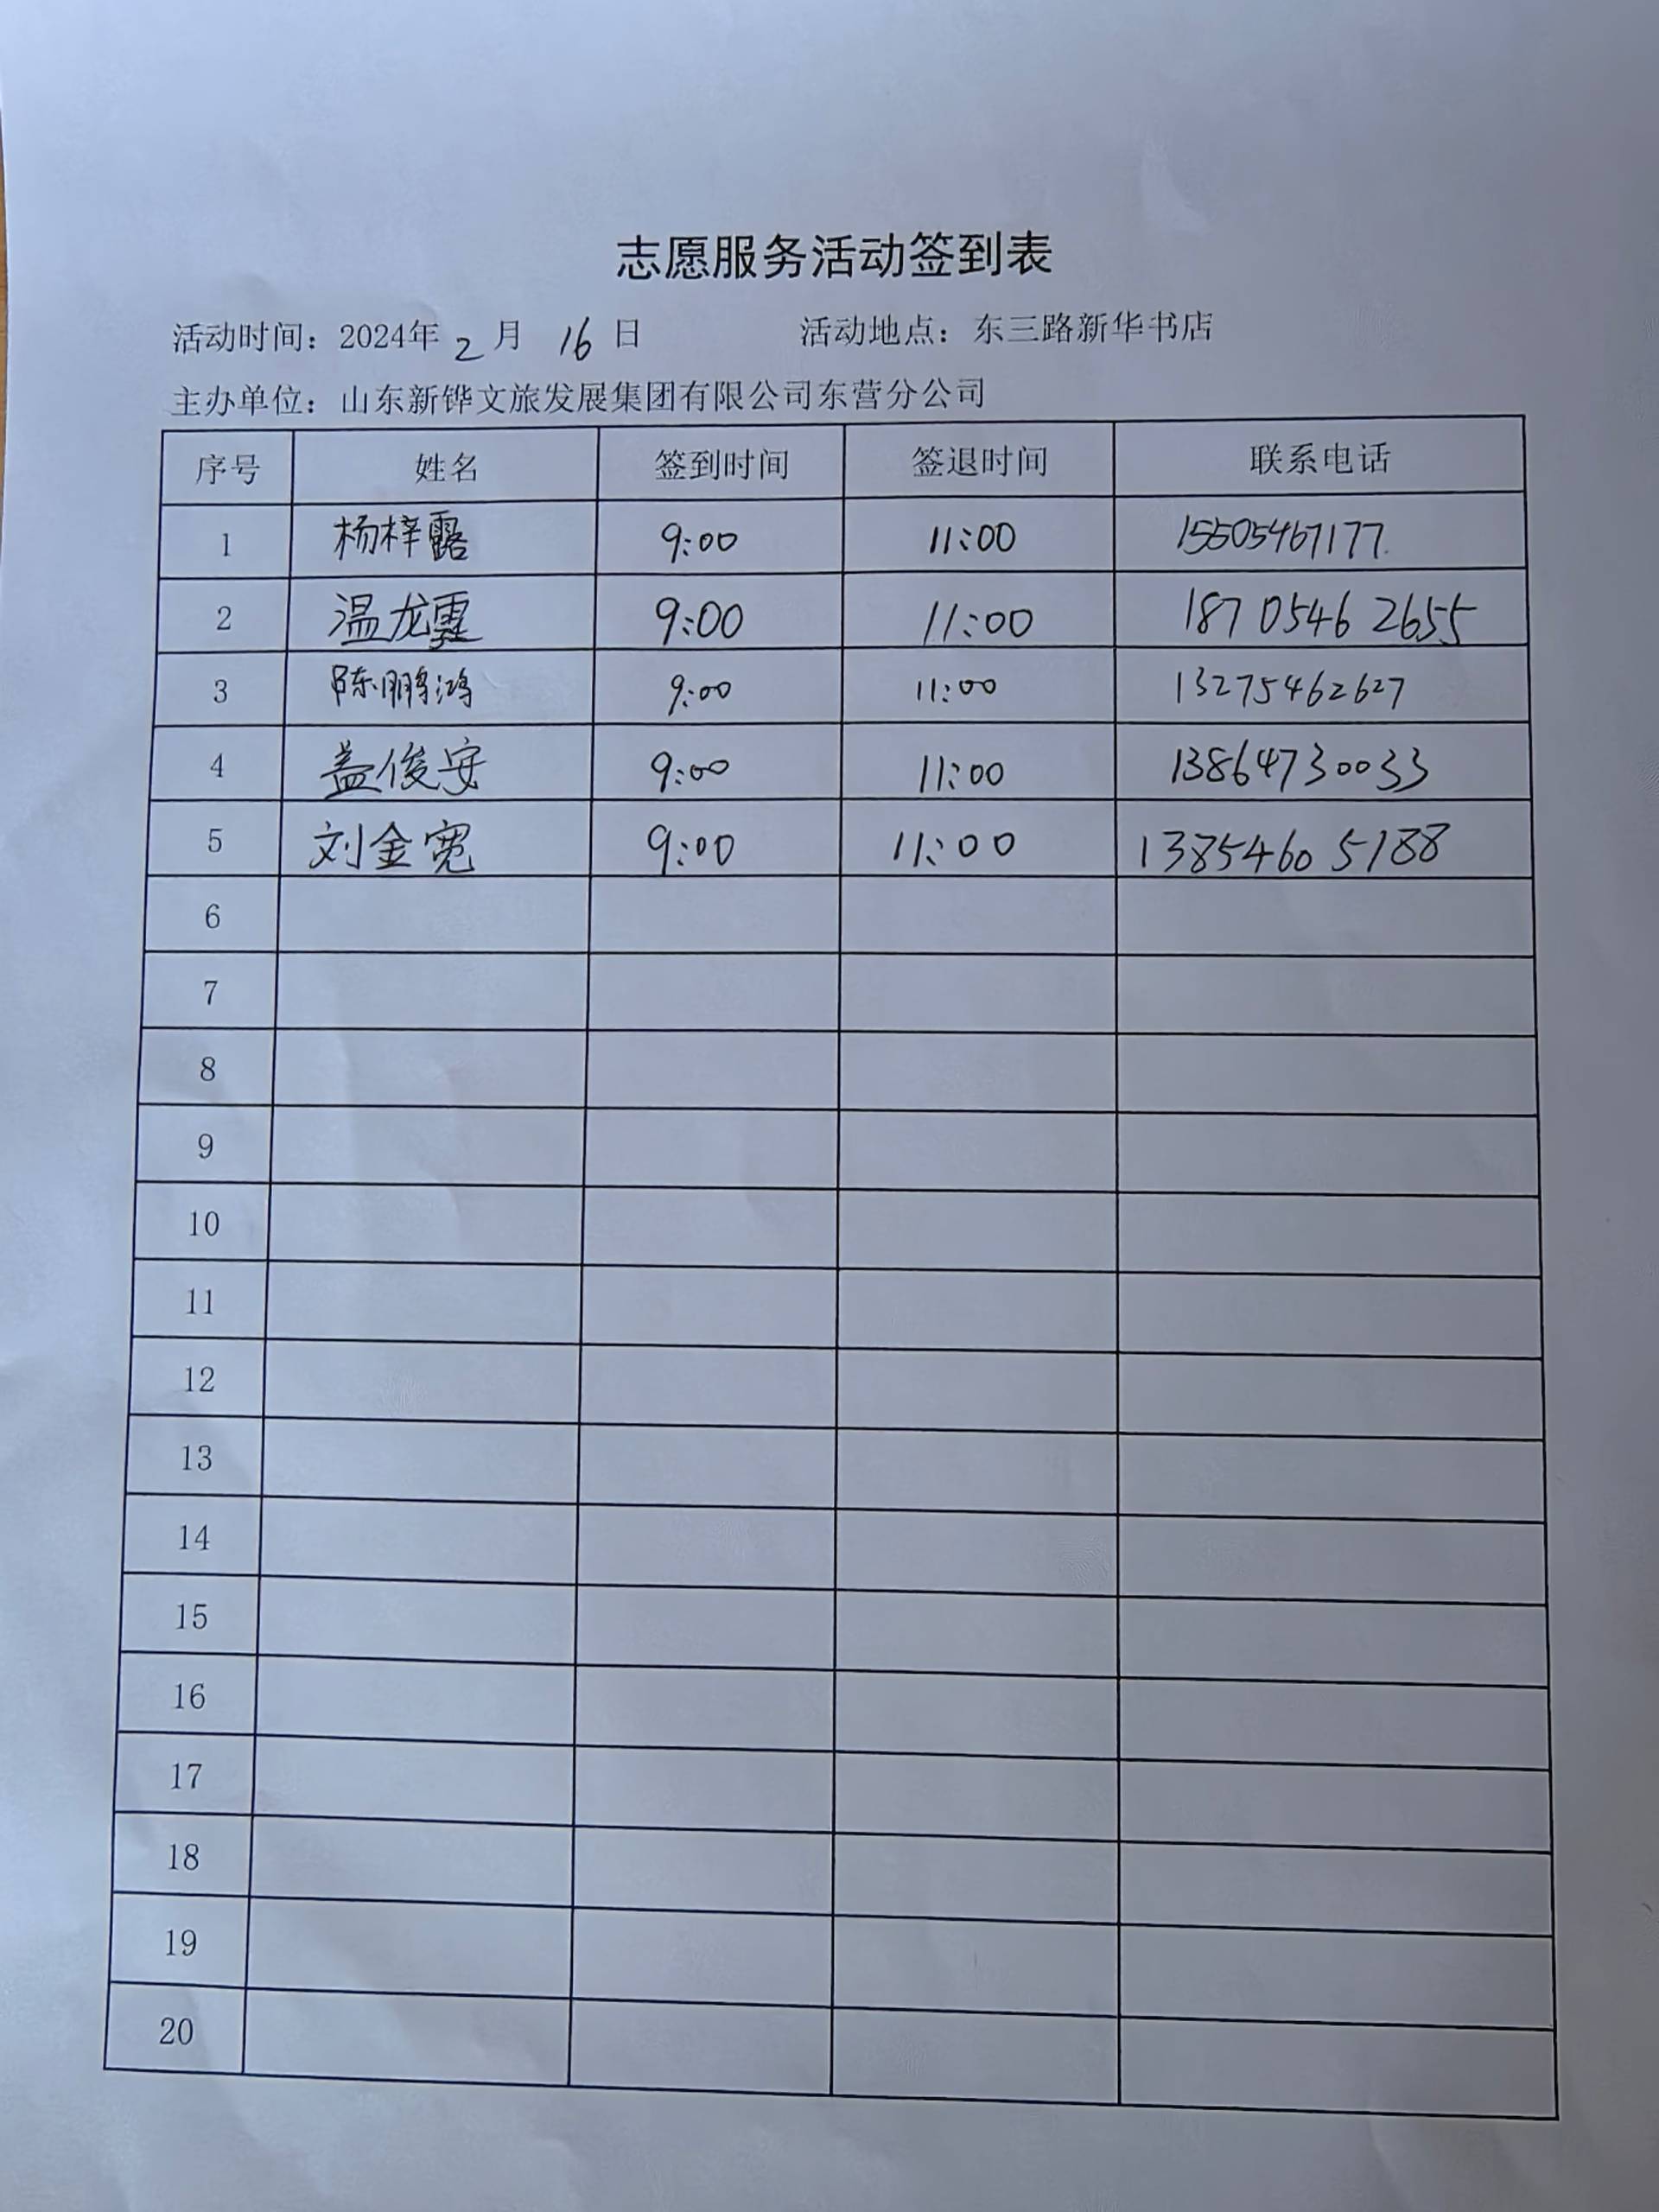 志愿服务活动签到表
活动时间：2024年 2 月 16 日 活动地点：东三路新华书店
主办单位：山东新铧文旅发展集团有限公司东营分公司
序号 姓名 签到时间 签退时间 联系电话
1 杨梓露 9:00 11:00 15505467177
2 温龙霆 9:00 11:00 187 0546 2655
3 陈鹏鸿 9:00 11:00 13275462627
4 盖俊安 9:00 11:00 13864730033
5 刘金宽 9:00 11:00 1385460 5188
6
7
8
9
10
11
12
13
14
15
16
17
18
19
20